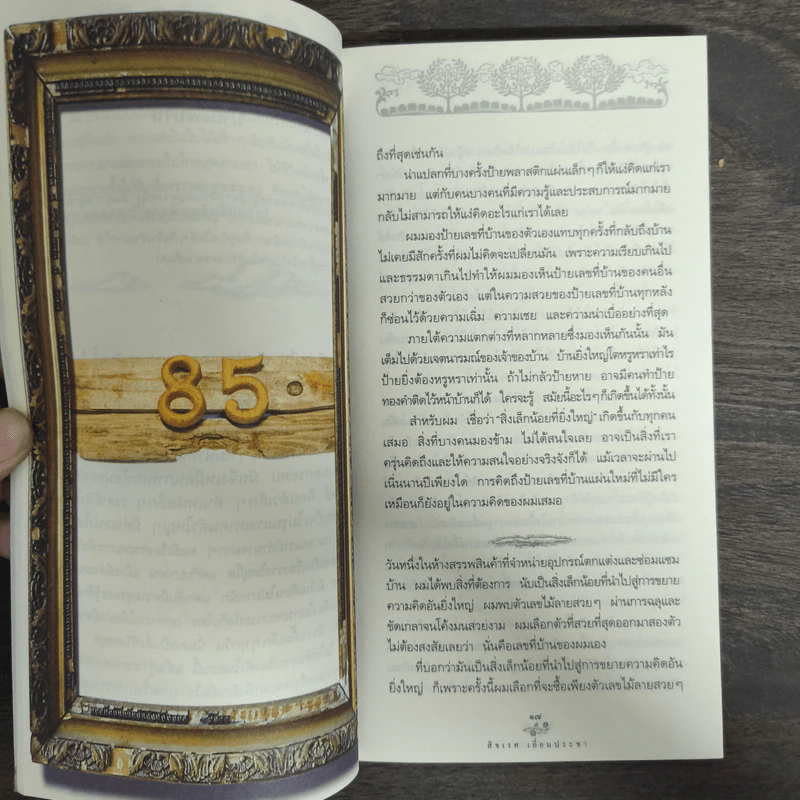 85
ถึงที่สุดเช่นกัน
น่าแปลกที่บางครั้งป้ายพลาสติกแผ่นเล็กๆ ก็ให้แง่คิดแก่เรา
มากมาย แต่กับคนบางคนที่มีความรู้และประสบการณ์มากมาย
กลับไม่สามารถให้แง่คิดอะไรแก่เราได้เลย
ผมมองป้ายเลขที่บ้านของตัวเองแทบทุกครั้งที่กลับถึงบ้าน
ไม่เคยมีสักครั้งที่ผมไม่คิดจะเปลี่ยนมัน เพราะความเรียบเกินไป
และธรรมดาเกินไปทำให้ผมมองเห็นป้ายเลขที่บ้านของคนอื่น
สวยกว่าของตัวเอง แต่ในความสวยของป้ายเลขที่บ้านทุกหลัง
ก็ซ่อนไว้ด้วยความเฉิ่ม ความเชย และความน่าเบื่ออย่างที่สุด
ภายใต้ความแตกต่างที่หลากหลายซึ่งมองเห็นกันนั้น มัน
เต็มไปด้วยเจตนารมณ์ของเจ้าของบ้าน บ้านยิ่งใหญ่โตหรูหราเท่าไร
ป้ายยิ่งต้องหรูหราเท่านั้น ถ้าไม่กลัวป้ายหาย อาจมีคนทำป้าย
ทองคำติดไว้หน้าบ้านก็ได้ ใครจะรู้ สมัยนี้อะไรๆ ก็เกิดขึ้นได้ทั้งนั้น
สำหรับผม เชื่อว่า “สิ่งเล็กน้อยที่ยิ่งใหญ่” เกิดขึ้นกับทุกคน
เสมอ สิ่งที่บางคนมองข้าม ไม่ได้สนใจเลย อาจเป็นสิ่งที่เรา
ครุ่นคิดถึงและให้ความสนใจอย่างจริงจังก็ได้ แม้เวลาจะผ่านไป
เนิ่นนานปีเพียงใด การคิดถึงป้ายเลขที่บ้านแผ่นใหม่ที่ไม่มีใคร
เหมือนก็ยังอยู่ในความคิดของผมเสมอ
วันหนึ่งในห้างสรรพสินค้าที่จำหน่ายอุปกรณ์ตกแต่งและซ่อมแซม
บ้าน ผมได้พบสิ่งที่ต้องการ นับเป็นสิ่งเล็กน้อยที่นำไปสู่การขยาย
ความคิดอันยิ่งใหญ่ ผมพบตัวเลขไม้ลายสวยๆ ผ่านการฉลุและ
ขัดเกลาจนโค้งมนสวยงาม ผมเลือกตัวที่สวยที่สุดออกมาสองตัว
ไม่ต้องสงสัยเลยว่า นั่นคือเลขที่บ้านของผมเอง
ที่บอกว่ามันเป็นสิ่งเล็กน้อยที่นำไปสู่การขยายความคิดอัน
ยิ่งใหญ่ ก็เพราะครั้งนี้ผมเลือกที่จะซื้อเพียงตัวเลขไม้ลายสวยๆ
๑๗
สิขเรศ เอี่ยมประชา